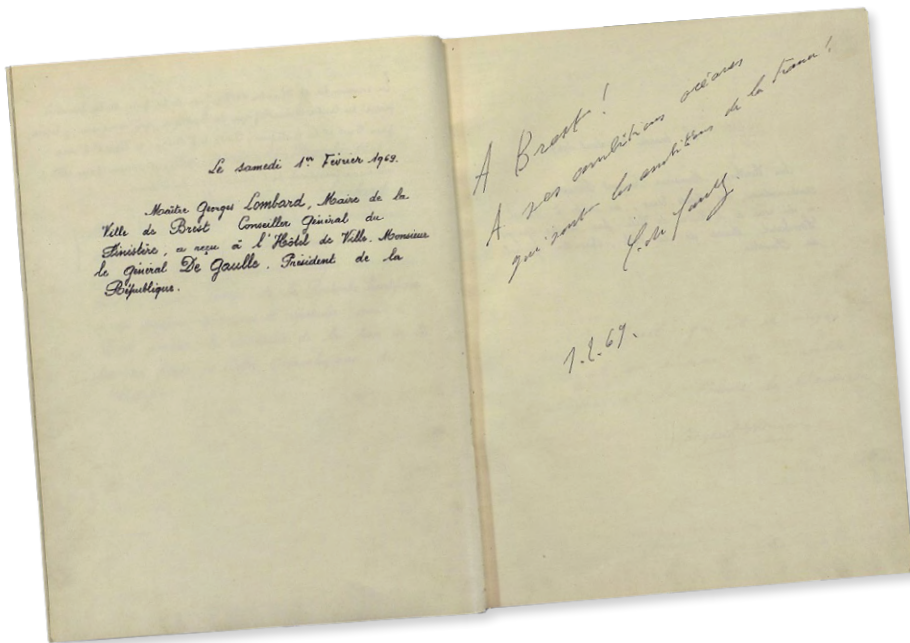 Le samedi 1er Février 1969.
Maître Georges Lombard, Maire de la
Ville de Brest Conseiller Général du
Finistère, a reçu à l'Hôtel de Ville. Monsieur
le général De Gaulle. Président de la
République.
A Brest !
A ses ambitions océanes
qui sont les ambitions de la France !
C. de Gaulle.
1.2.69.